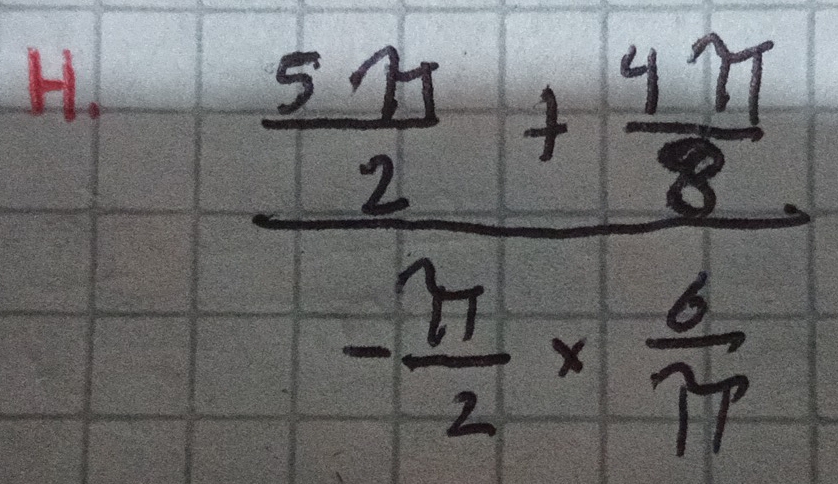 H. \frac{\frac{5π}{2} + \frac{4π}{8}}{-\frac{π}{2} × \frac{6}{π}}